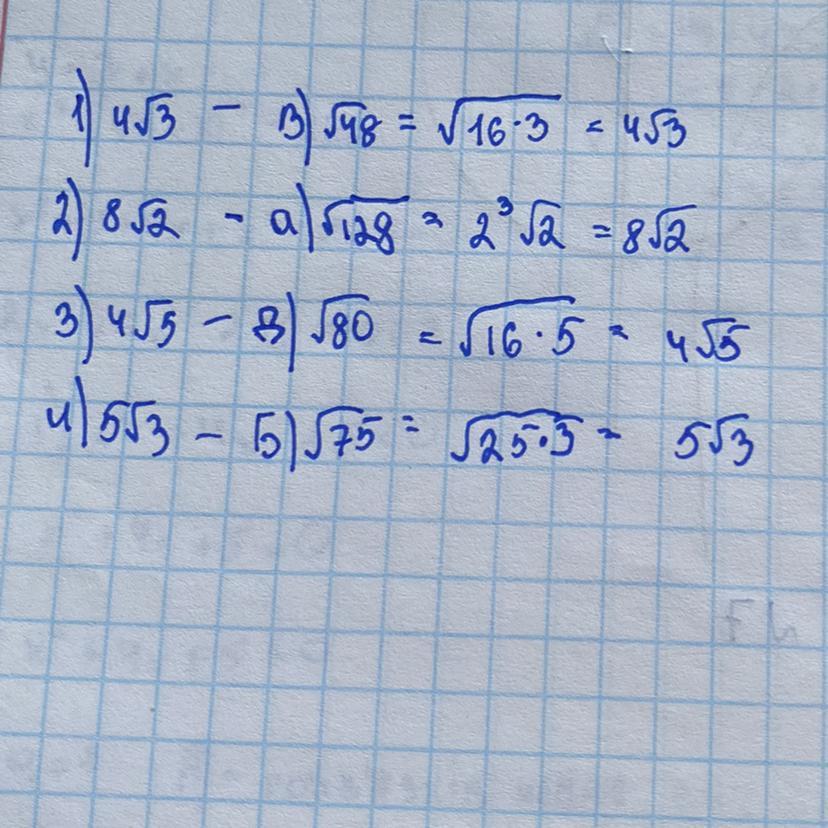 1) 4√3 - В) √48 = √16·3 = 4√3
2) 8√2 - а) √128 = 2³√2 = 8√2
3) 4√5 - Д) √80 = √16·5 = 4√5
4) 5√3 - Б) √75 = √25·3 = 5√3